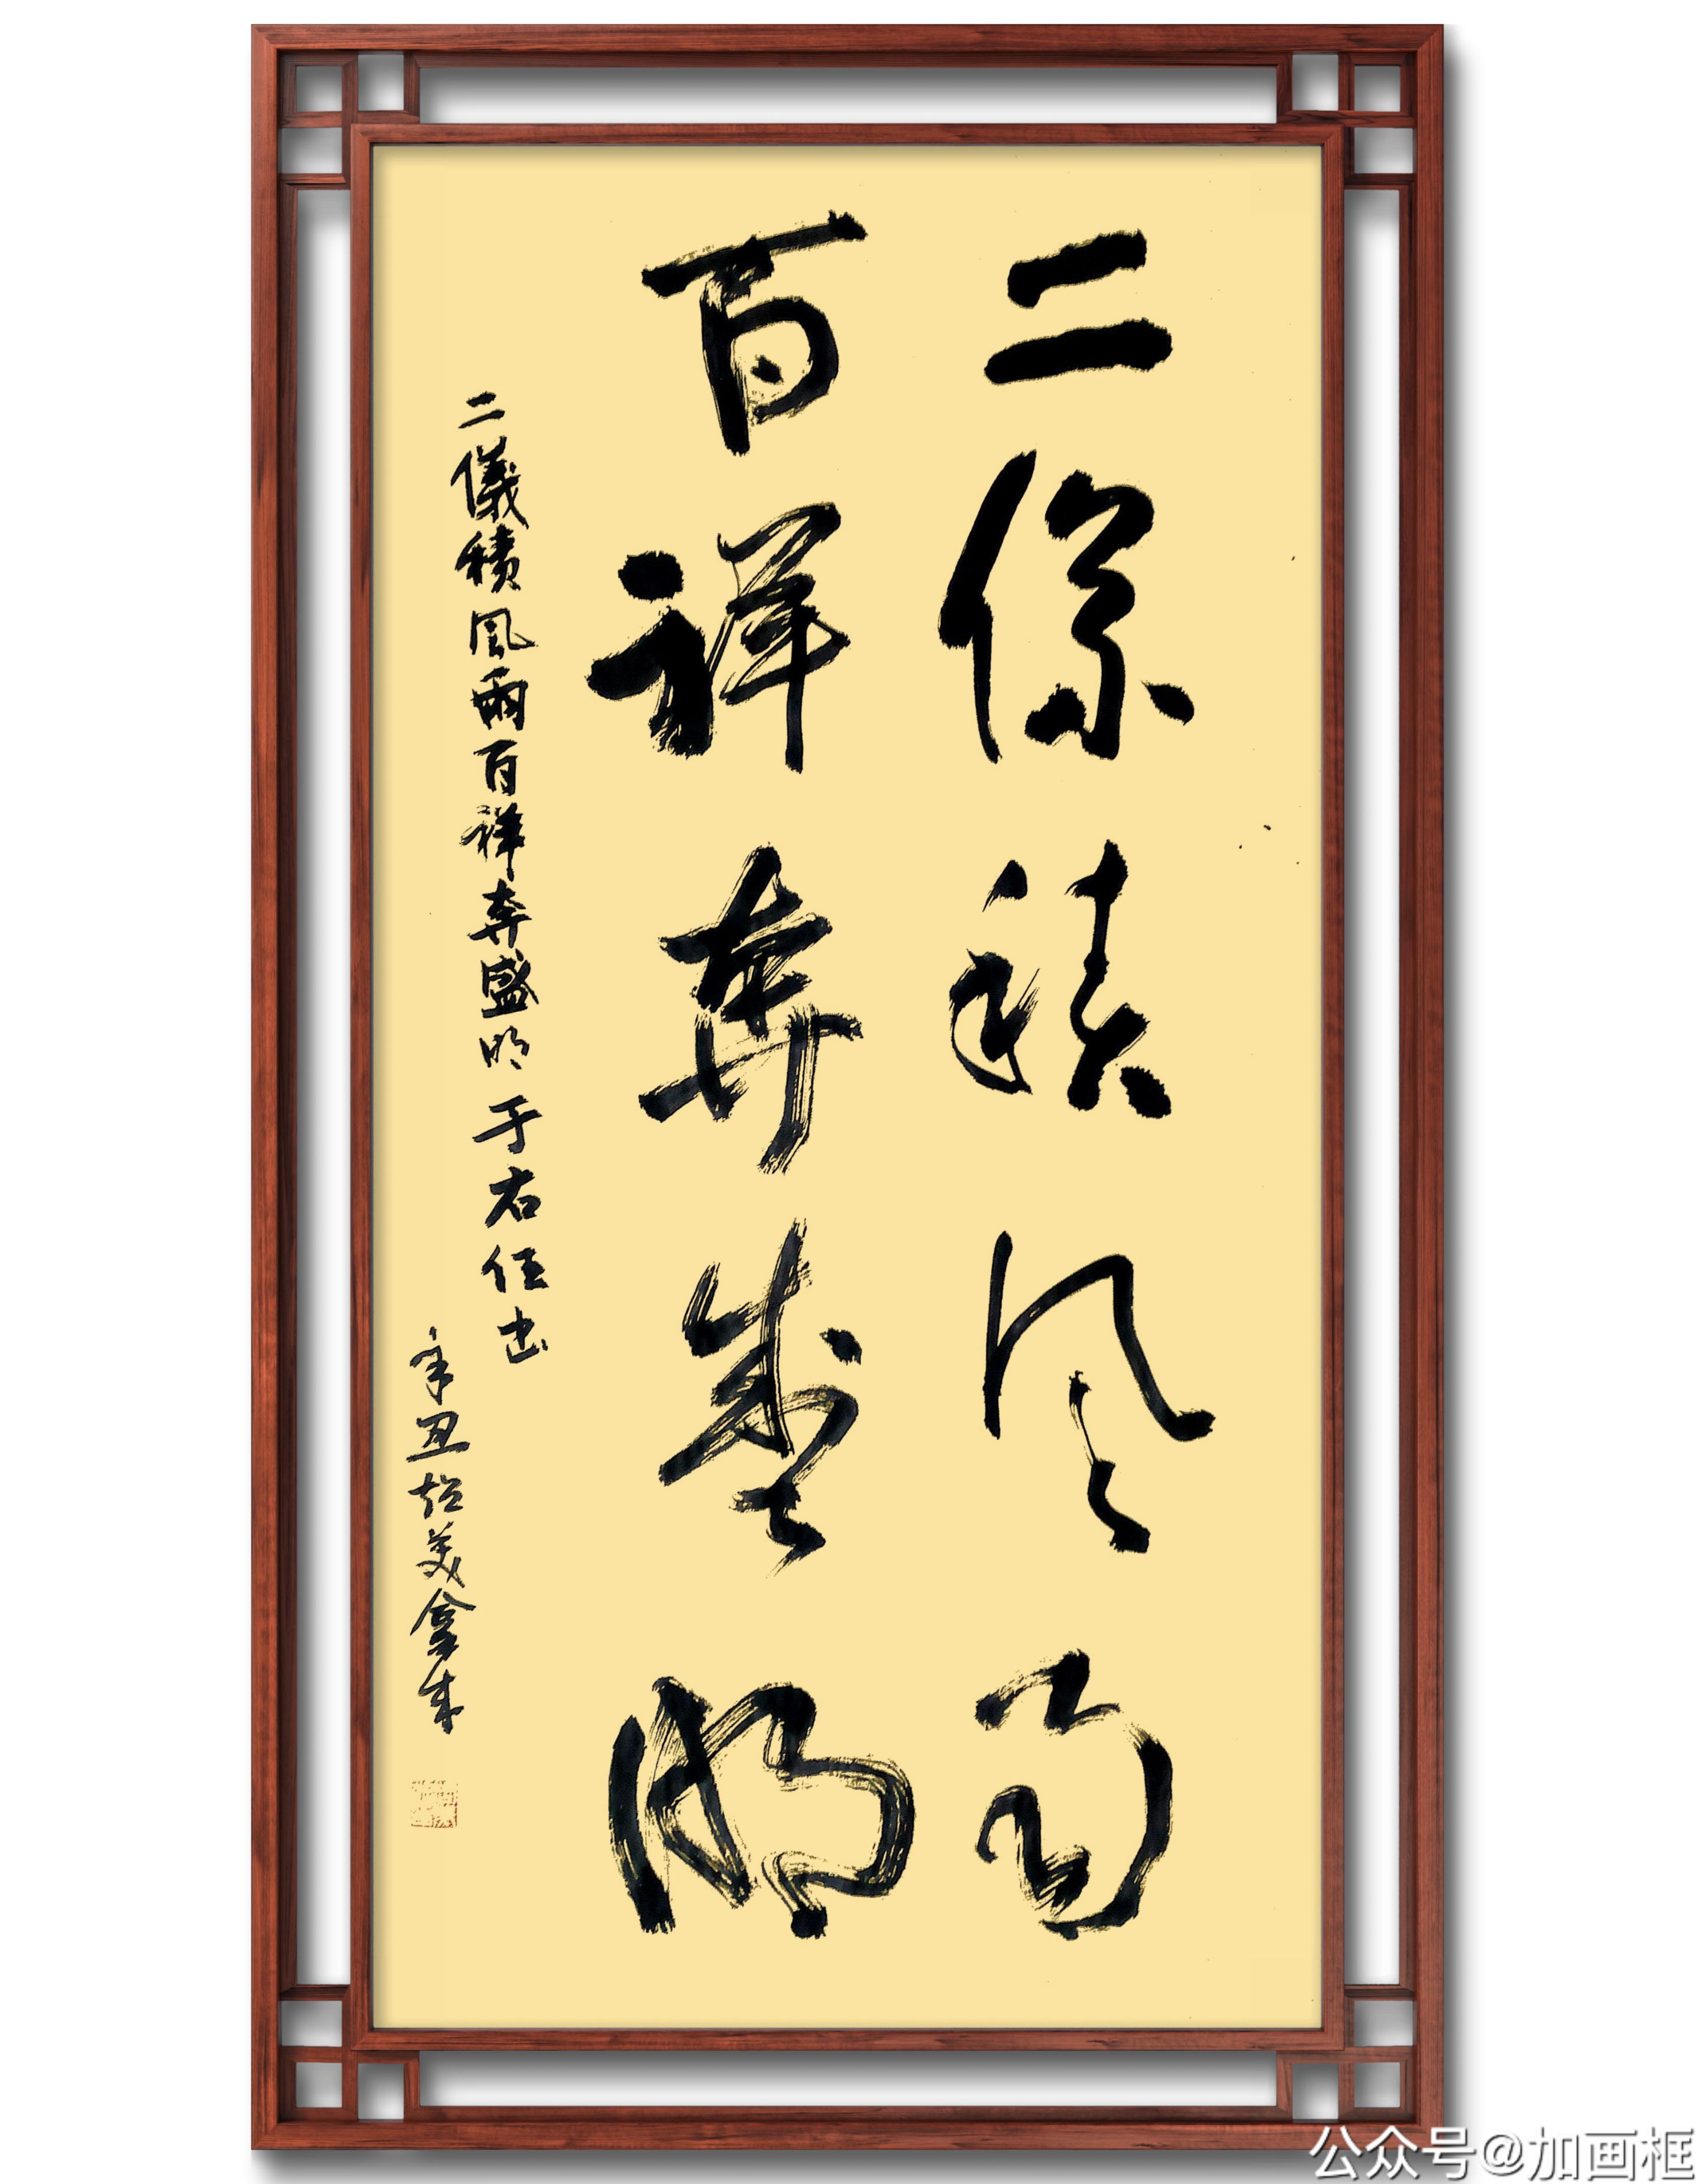 二儀積風雨
百祥奔盛明
二儀積風雨百祥奔盛明于右任出
辛丑拾美拿来
公众号@加画框